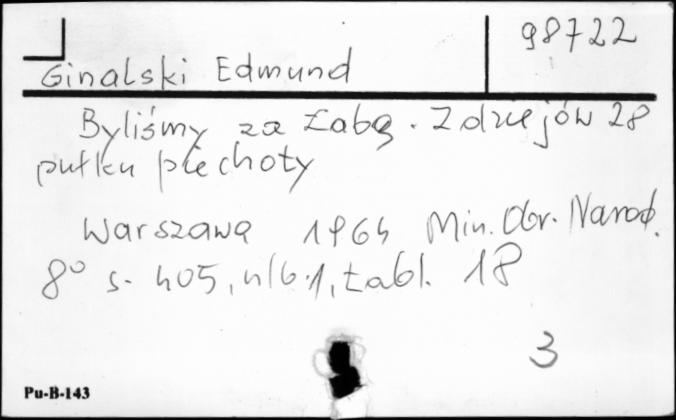 98722
Ginalski Edmund
Byliśmy za Łabą. Z dziejów 28
pułku piechoty
Warszawa 1964 Min. Obr. Narod.
8° s. 405, nlb. 1, tabl. 18
3
Pu-B-143